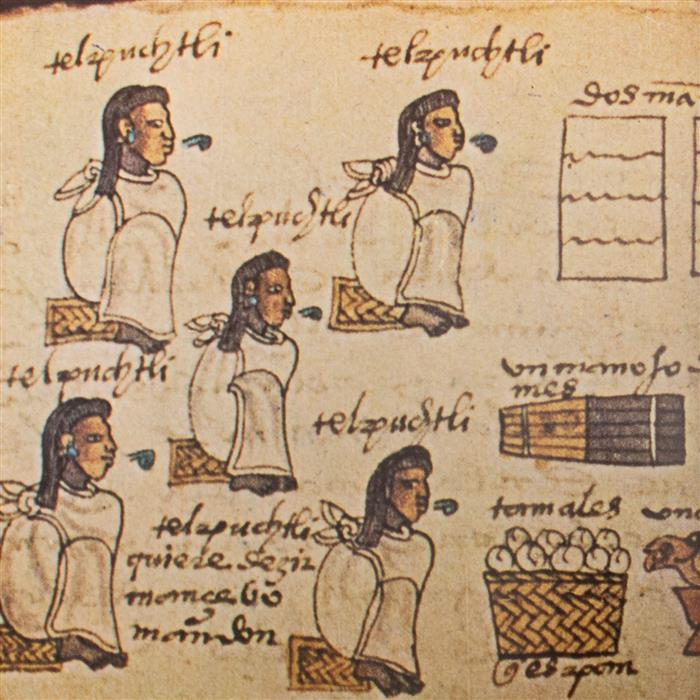 telpuchtli
telpuchtli
dos ma
telpuchtli
telpuchtli
un mano
telpuchtli
telpuchtli
quiere dezir
mancebo
mandon
tamales